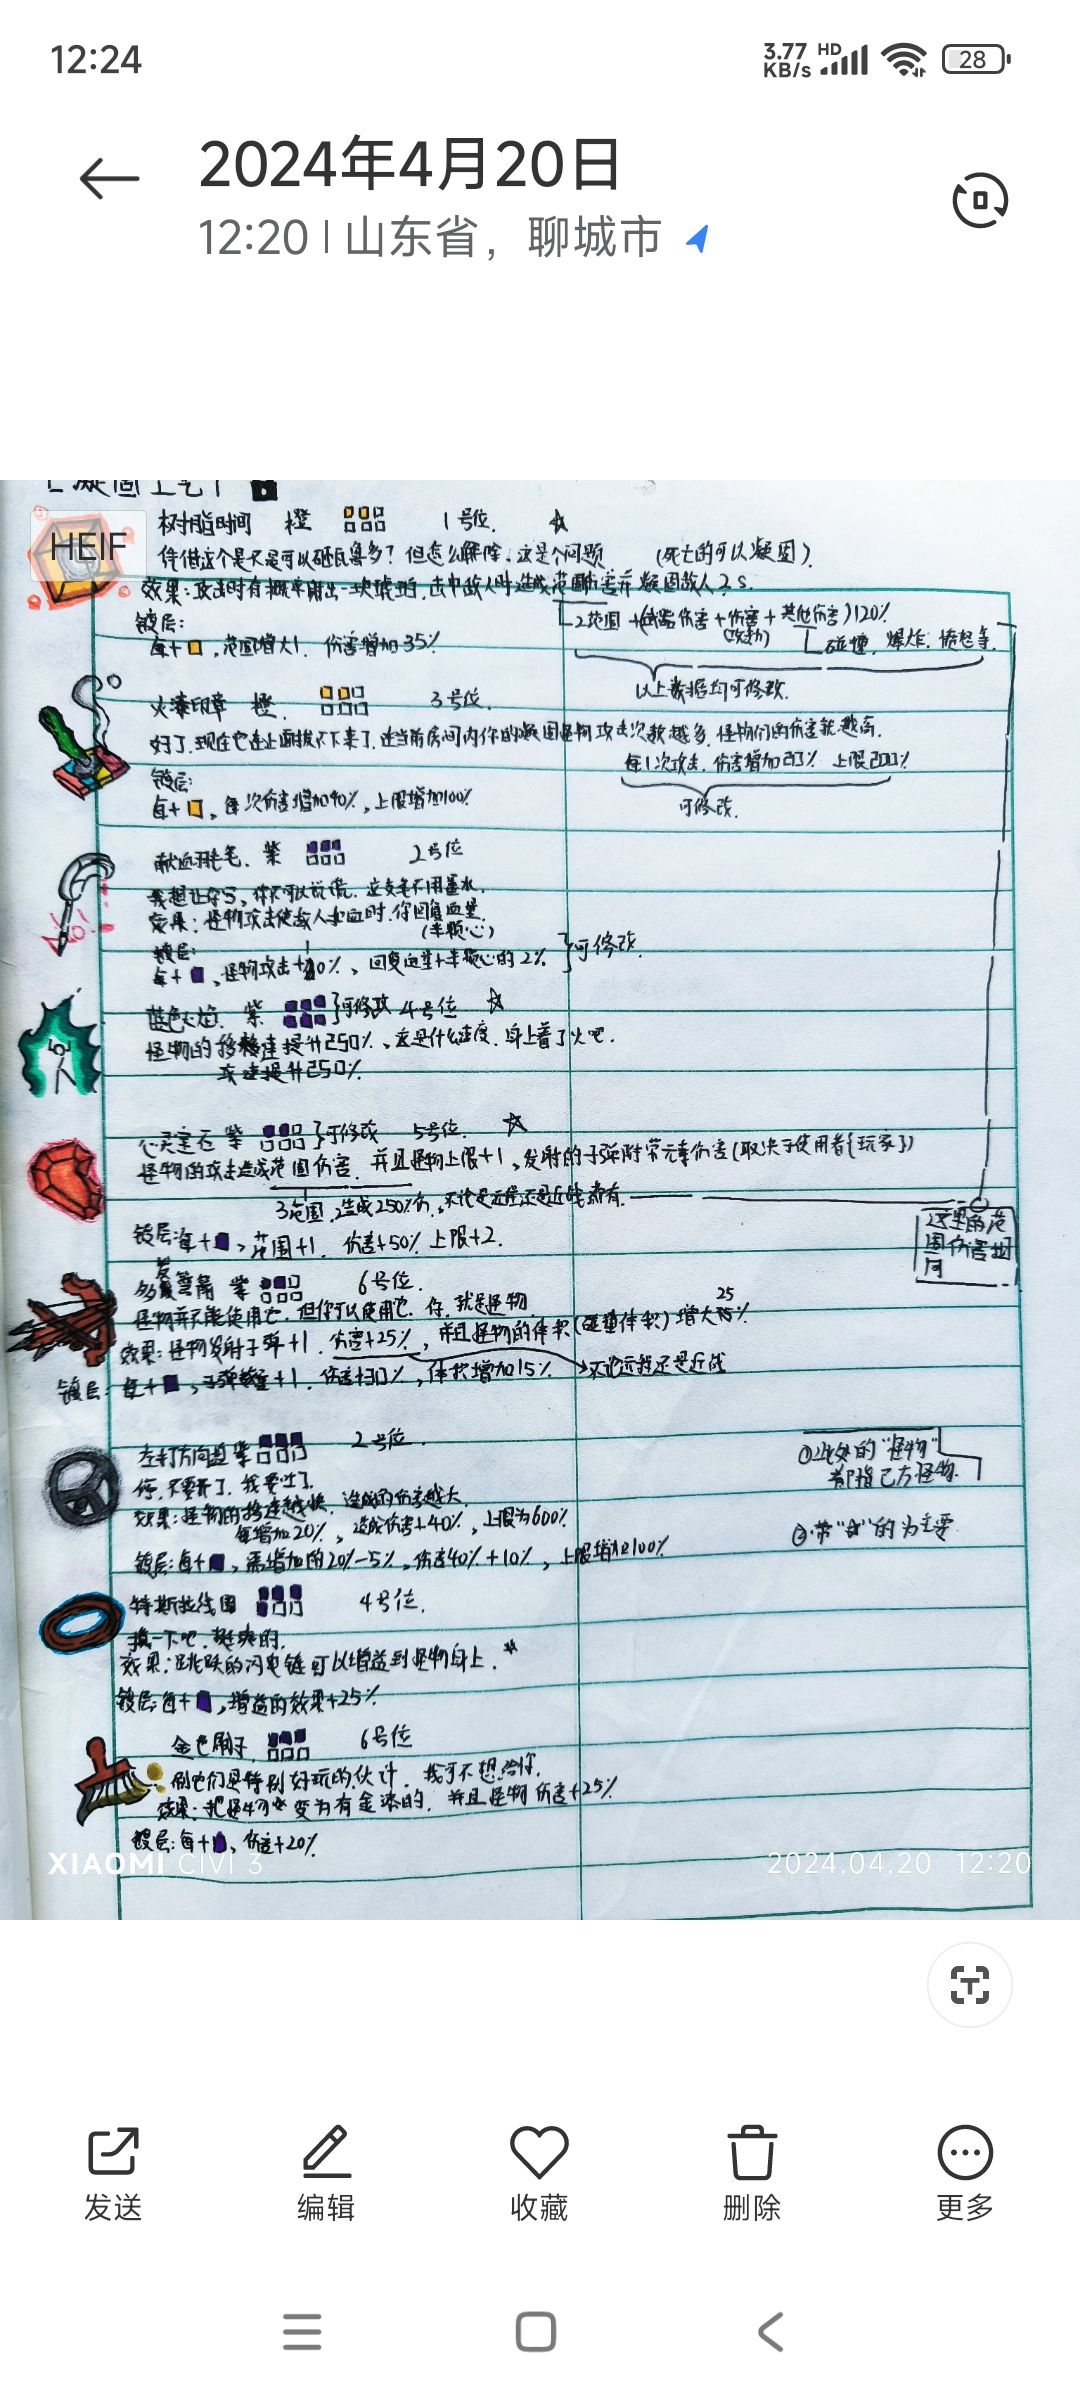 12:24
3.77 KB/s HD 28
2024年4月20日
12:20 | 山东省，聊城市
HEIF
树脂时间 橙 1号位.
凭借这个是不是可以砸瓦鲁多? 但怎么解除.这是个问题 (死亡的可以凝固)
效果:攻击时有概率射出一块琥珀.击中敌人时造成范围伤害并凝固敌人2s.
2范围+(武器伤害+伤害+其他伤害)120%
碰撞.爆炸.愤怒等.
镀层:
每+,范围增大1.伤害增加35%
以上数据均可修改.
火漆印章 橙. 3号位.
好了.现在它在上面拔不下来了.在当前房间内你的凝固怪物攻击次数越多.怪物们的伤害就越高.
每1次攻击.伤害增加20% 上限200%
可修改.
镀层:
每+,每次伤害增加40%,上限增加100%
献血羽毛. 紫 2号位
我想让你写,你不可以说谎.这支毛不用墨水.
效果:怪物攻击使敌人扣血时.你回复血量.
(半颗心)
镀层:
每+,怪物攻击+%,回复血量+半颗心的2% }可修改.
蓝色火焰. 紫 }可修改 4号位
怪物的移速提升250%.这是什么速度.身上着了火吧.
攻速提升250%.
心灵宝石 紫 }可修改 5号位.
怪物的攻击造成范围伤害.并且怪物上限+1,发射的子弹附带元素伤害(取决于使用者{玩家})
3范围.造成250%伤.不论是远程还是近战都有.
这里的范围伤害相同
镀层:每+,范围+1.伤害+50%上限+2.
多复弩箭 紫 6号位.
怪物并不能使用它.但你可以使用它.你.就是怪物
25
效果:怪物发射子弹+1.伤害+25%,并且怪物的体积(碰撞体积)增大%
镀层:每+,子弹数量+1.伤害+30%,体积增加15% 不论远程还是近战
左打方向盘 紫 2号位.
停.不要开了.我要吐了.
效果:怪物的移速越快.造成的伤害越大.
每增加20%,造成伤害+40%,上限为600%
镀层:每+,需增加的20%-5%,伤害40%+10%,上限增加100%
①此处的"怪物"都指己方怪物.
②带"☆"的为主要
特斯拉线圈 4号位.
摸一下吧.挺爽的.
效果:跳跃的闪电链可以增益到怪物身上.*
镀层:每+,增益的效果+25%
金色刷子. 6号位
刷它们是特别好玩的.伙计.我可不想给你.
效果:把怪物变为有金漆的.并且怪物伤害+25%
镀层:每+,伤害+20%
XIAOMI CIVI 3
2024.04.20 12:20
发送 编辑 收藏 删除 更多